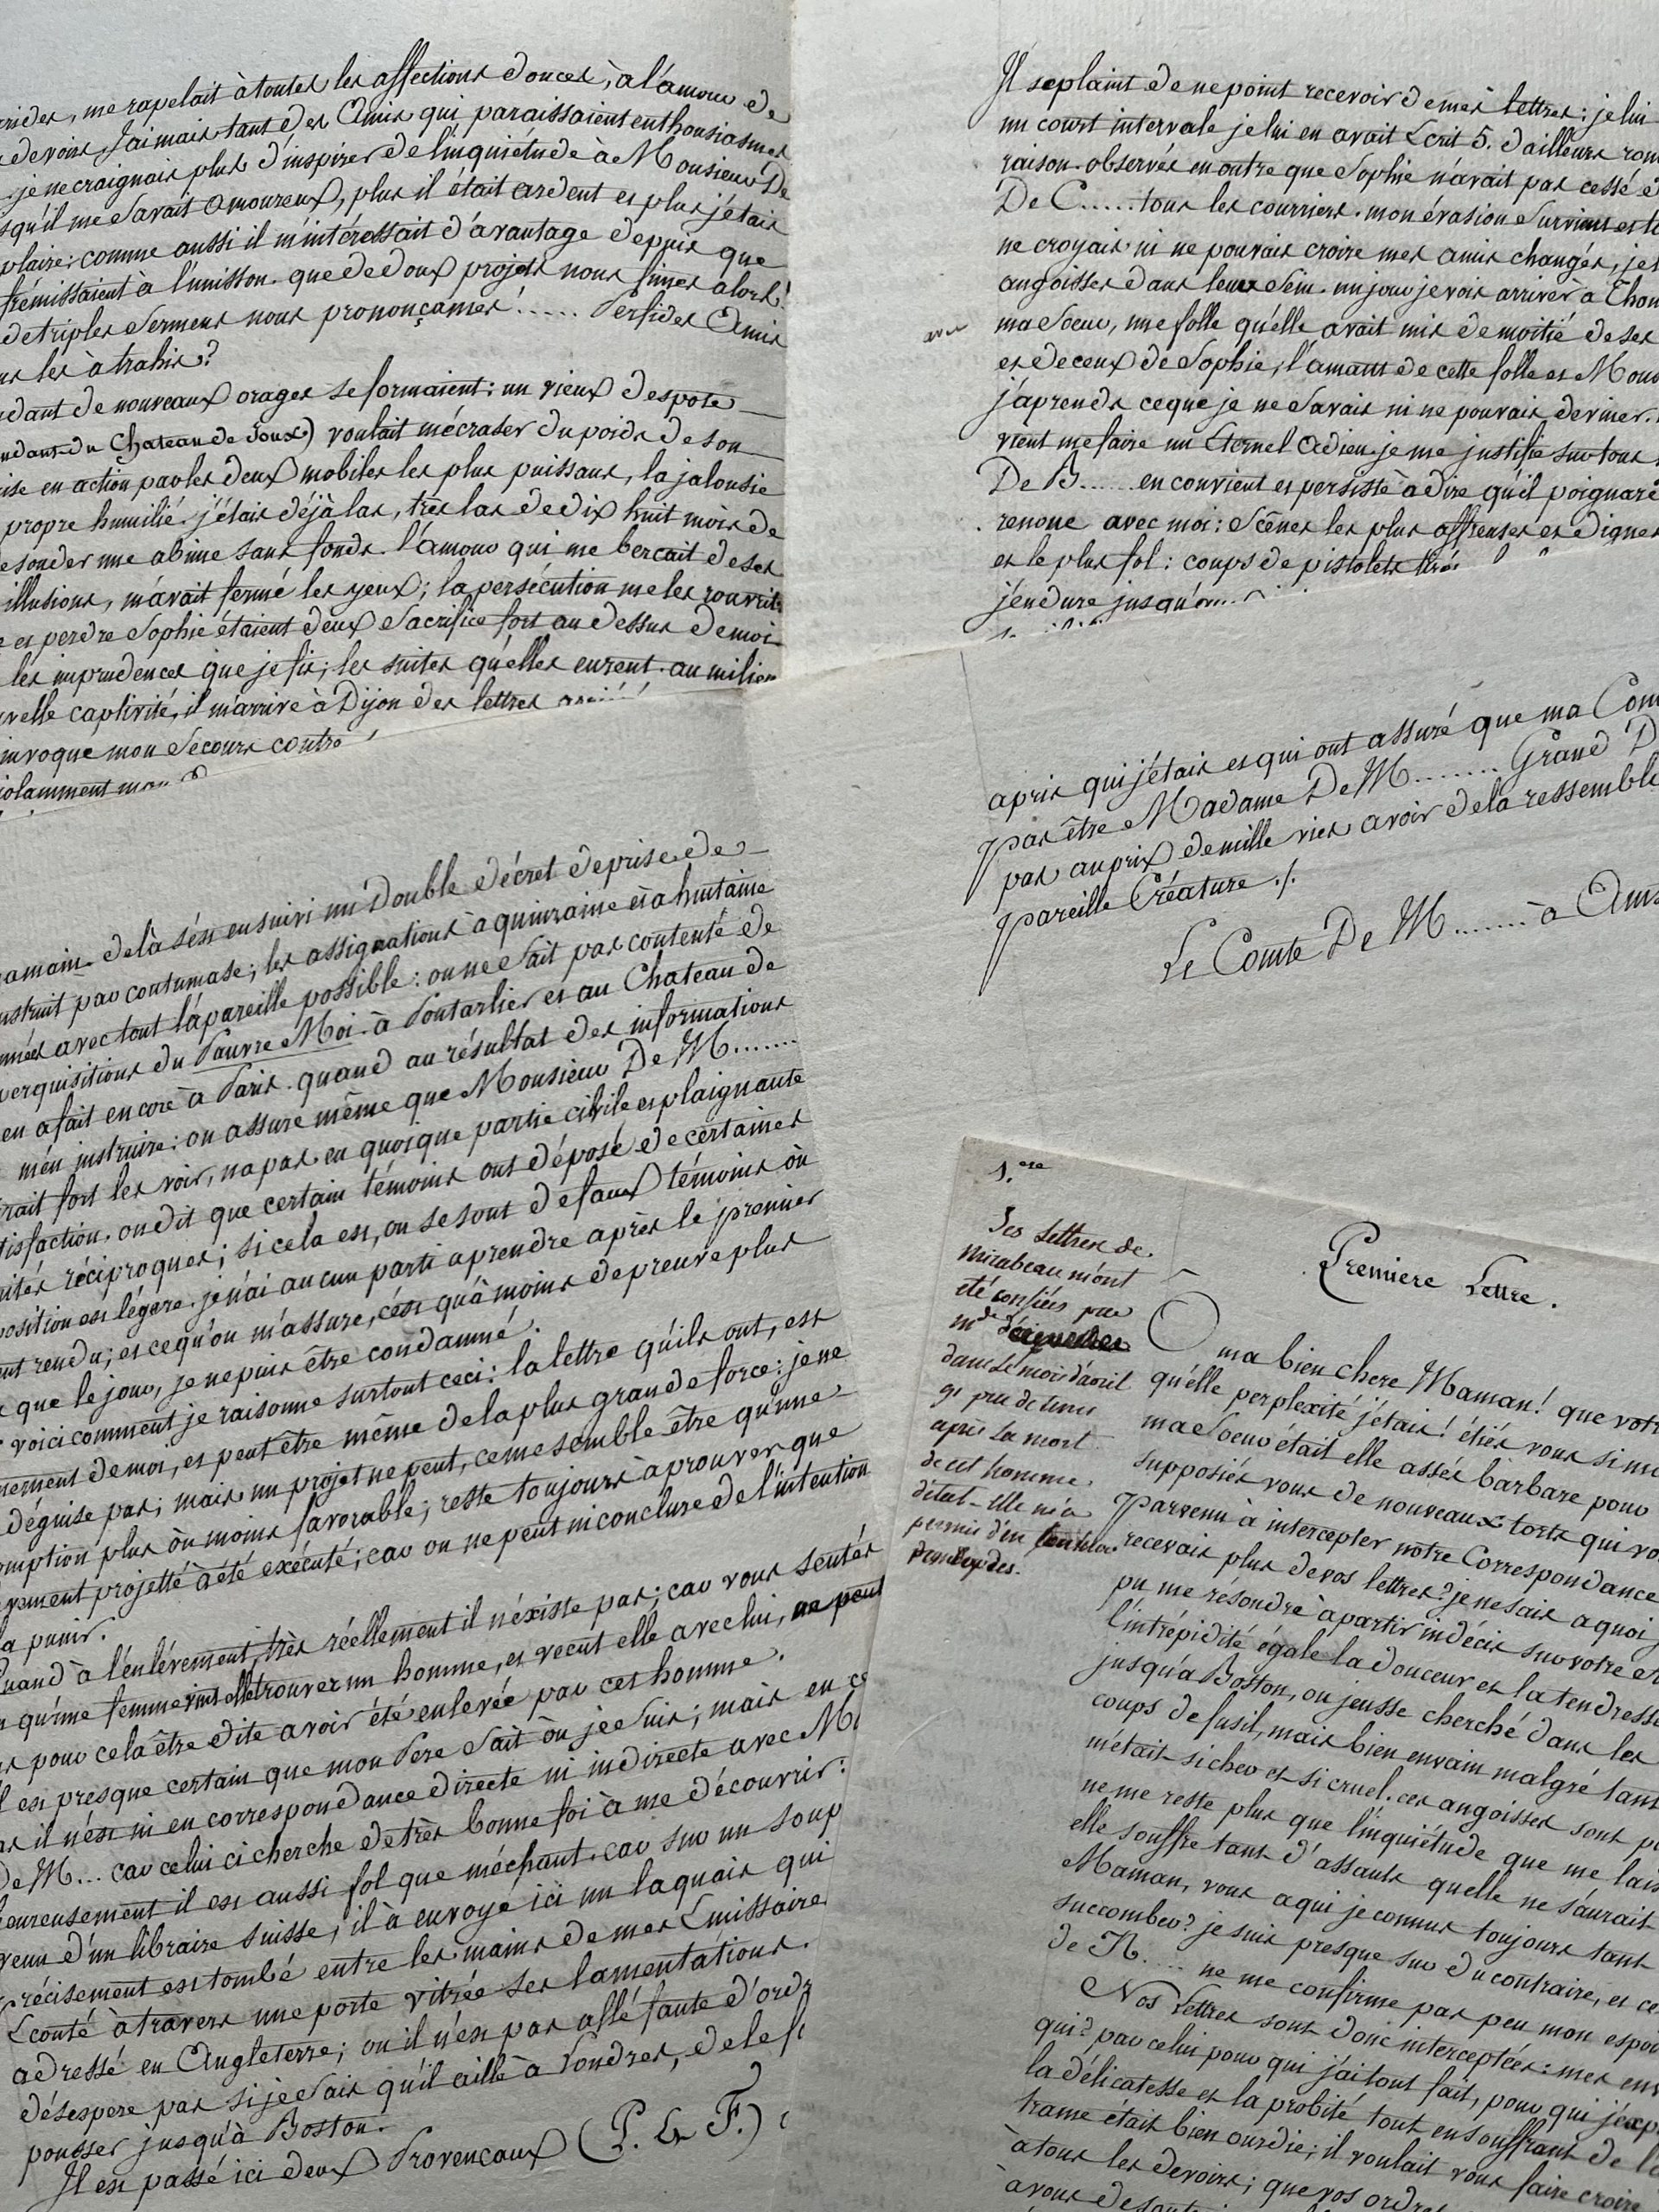 me rapelait à toutes les affections douces, à l'amour de
devoirs, J'aimais tant des Amis qui paraissaient enthousiasmés
je ne craignais plus d'inspirer de l'inquiétude à Monsieur De
squ'il me savait amoureux, plus il était ardent et plus j'étais
plaire; comme aussi il m'intéressait d'avantage depuis que
frémissaient à l'unisson. que de doux projets nous fimes alors!
de triples sermens nous prononçames! ..... Perfides Amis
les à trahis?
dant de nouveaux orages se formaient: un vieux despote
ndant du Chateau de Joux) voulait m'écraser du poids de son
ise en action par les deux mobiles les plus puissans, la jalousie
propre humilié. j'étais déjà las, très las de dix huit mois de
sonder une abime sans fonds. l'amour qui me berçait de ses
illusions, m'avait fermé les yeux; la persécution me les rouvrit.
et perdre Sophie étaient deux sacrifice fort au dessus de moi
les imprudences que je fis; les suites qu'elles eurent. au milieu
uvelle captivité, il m'arrive à Dijon des lettres
invoque mon secours contre
iolamment
amain. de là s'est ensuivi un double décret de prise de
nstruit par contumase; les assignations à quinzaine et à huitaine
nnées avec tout l'apareille possible: on ne s'ait pas contenté de
perquisitions du Pauvre Moi à Pontarlier et au Chateau de
en a fait encore à Paris. quand au résultat des informations
m'en instruire: on assure même que Monsieur De M.......
rait fort les voir, n'a pas eu quoique partie civile et plaignante
tisfaction. on dit que certain témoins ont déposé de certaines
ités réciproques; si cela est, ou se sont de faux témoins ou
position est légère. je n'ai aucun parti aprendre après le premier
ent rendu; et ce qu'on m'assure, c'est qu'à moins de preuve plus
que le jour, je ne puis être condamné.
voici comment je raisonne surtout ceci: la lettre qu'ils ont, est
nement de moi, et peut être même de la plus grande force: je ne
déguise pas; mais un projet ne peut, ce me semble être qu'une
omption plus où moins favorable; reste toujours à prouver que
vement projetté à été exécuté; car on ne peut ni conclure de l'intention
la punir.
Quand à l'enlévement, très réellement il n'éxiste pas; car vous sentés
qu'une femme vint elle trouver un homme, et vecut elle avec lui, ne peut
pour cela être dite avoir été enlevée par cet homme.
est presque certain que mon Pere Sait où je suis; mais en ce
il n'est ni en correspondance directe ni indirecte avec M
De M... car celui ci cherche de très bonne foi à me découvrir:
eureusement il est aussi fol que méchant. car sur un soup
venu d'un libraire suisse, il à envoyé ici un laquais qui
récisement est tombé entre les mains de mes Emissaire
Ecouté à travers une porte vitrée ses lamentations.
adressé en Angleterre; ou il n'est pas allé faute d'ordr
désespere pas si je sais qu'il aille à Londres, de le f
pousser jusqu'à Boston.
Il est passé ici deux Provencaux (P. & F.)
Il se plaint de ne point recevoir de mes lettres: je lui
un court intervale je lui en avait Ecrit 5. d'ailleurs
raison. observés en outre que Sophie n'avait pas cessé d
De C...... tous les courriers. mon évasion survint et
ne croyais ni ne pouvais croire mes amis changés, je
angoisses dans leur sein. un jour je vois arriver à Thon
avec ma soeur, une folle qu'elle avait mis de moitié de ses
et de ceux de Sophie; l'amant de cette folle et Mons
j'aprends ce que je ne savais ni ne pouvais deviner.
vient me faire un Eternel Adieu. je me justifie sur tous
De B...... en convient et persiste à dire qu'il poignare
renoue avec moi: Scênes les plus affreuses et dignes
et le plus fol: coups de pistolets tirés
j'endure jusqu'
apris qui j'étais et qui ont assuré que ma Com
pas être Madame De M........ Grand D
pas au prix de mille vies avoir de la ressemble
pareille Créature ./.
Le Comte De M....... à Ams
1.ere
Les Lettres de
Mirabeau m'ont
été confiées par
m.de
dans le mois d'avril
91 peu de tems
après la mort
de cet homme
d'état - elle m'a
permis d'en
Premiere Lettre.
O ma bien chere Maman! que votr
qu'elle perplexité j'étais! étiés vous si m
ma Soeur était elle assés barbare pour
supposiés vous de nouveaux torts qui vo
Parvenu à intercepter notre Correspondance
recevais plus de vos lettres? je ne sais a quoi
pu me résoudre à partir indécis sur votre et
l'intrépidité égale la douceur et la tendresse
jusqu'a Boston, ou jeusse cherché dans les
coups de fusil, mais bien envain malgré tant
m'était si cher et si cruel. ces angoisses sont p
ne me reste plus que l'inquiétude que me lais
elle souffre tant d'assauts quelle ne s'aurait
Maman, vous a qui je connus toujours tant
succomber? je suis presque sur du contraire, et ce
de R.... ne me confirme pas peu mon espoi
Nos Lettres sont donc interceptées: mes env
qui? par celui pour qui j'ai tout fait, pour qui j'exp
la délicatesse et la probité tout en souffrant de l
trame était bien ourdie; il voulait vous faire croire
à tous les devoirs; que vos ordres
à vous